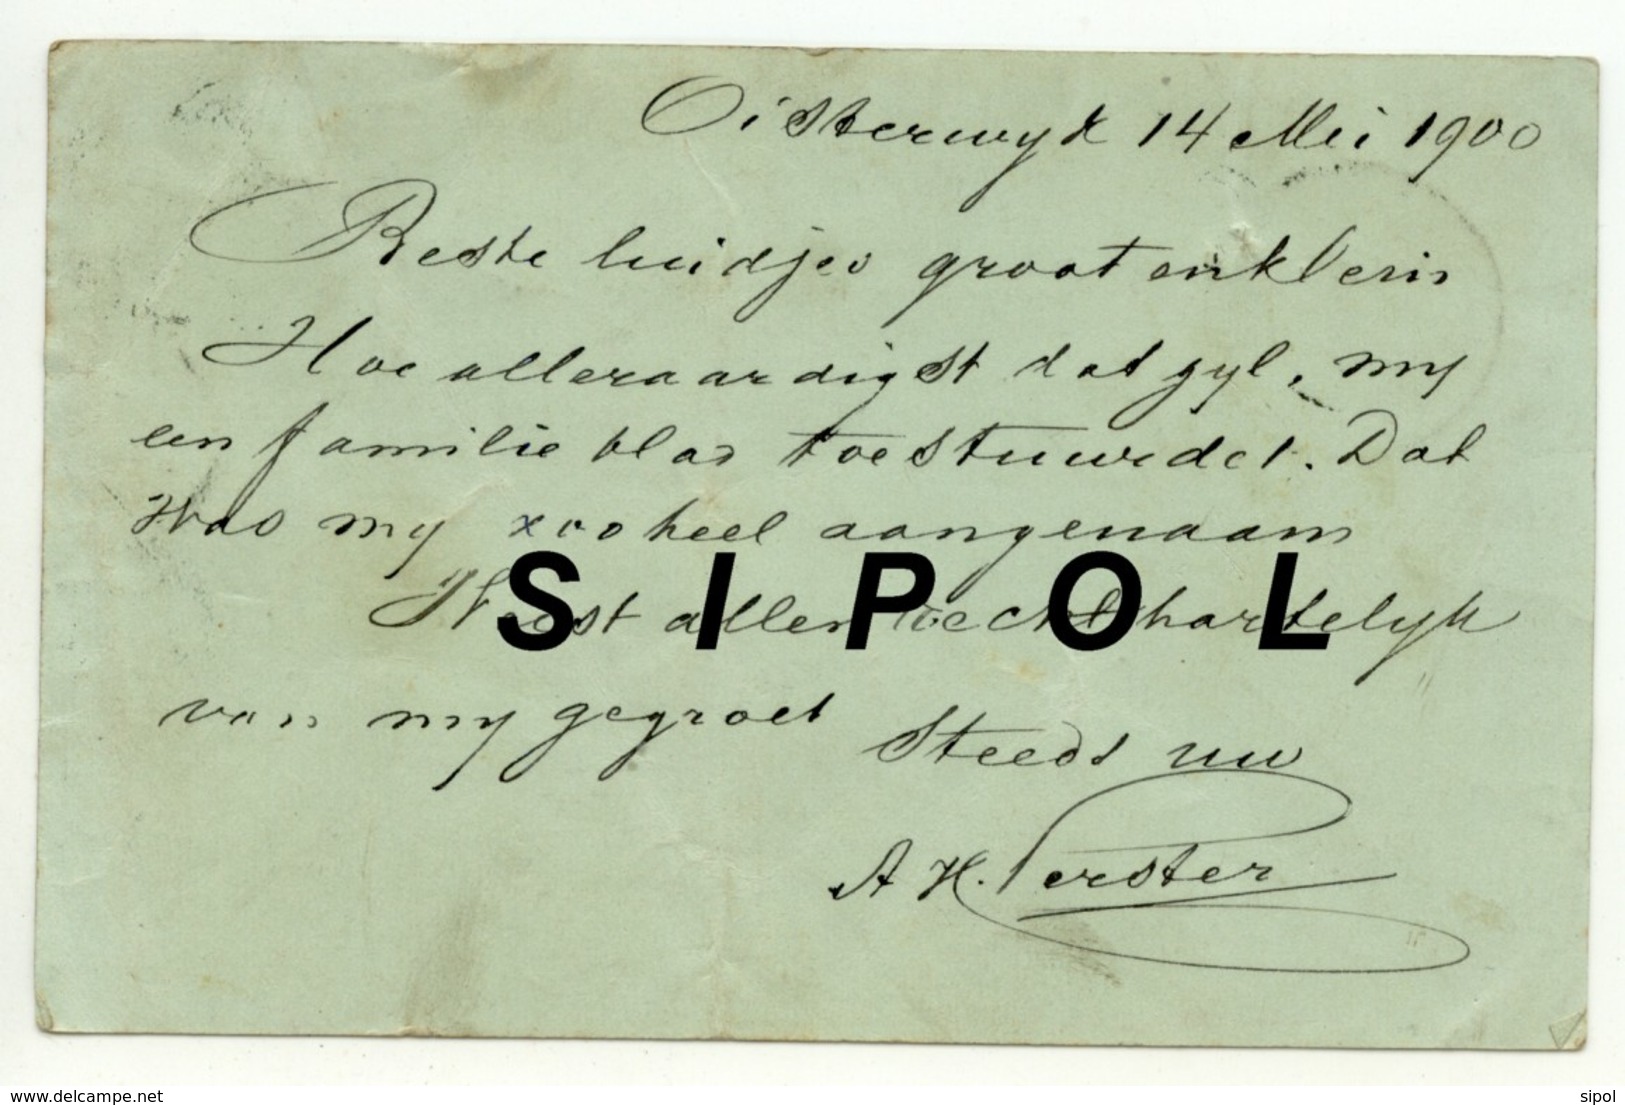 Oisterwyk 14 Mei 1900
Beste luidjes groot en klein
Hoe alleraardigst dat gyl, my
een familie blad toestuurdet. Dat
was my zoo heel aangenaam
SIPOL
Weest allen recht hartelyk
van my gegroet
Steeds uw
A H. Perster
www.delcampe.net
sipol